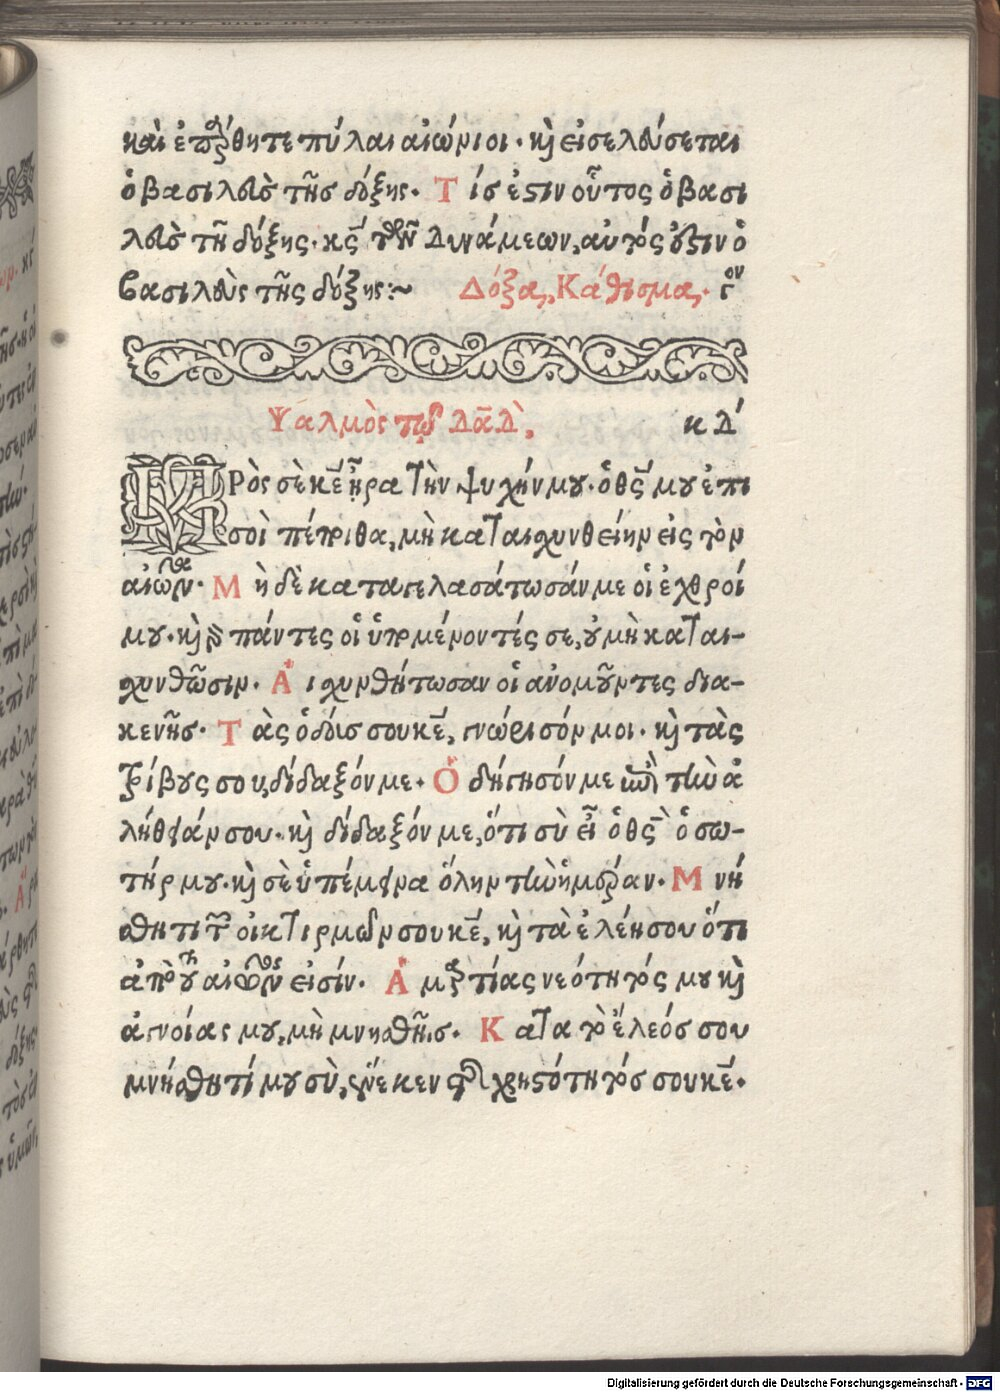 καὶ ἐπάρθητε πύλαι αἰώνιοι · κỳ εἰσελεύσεται
ὁ βασιλεὺσ τῆσ δόξης · Τίσ ἐστιν οὗτος ὁ βασι
λεὺσ τῆ δόξης · κς̄ τῶν Δυνάμεων, αὐτός ἐστιν ὁ
βασιλεὺς τῆς δόξης :~ Δόξα, Κάθισμα · γ ον
Ψαλμὸς τῷ Δᾱδ̀, κδ'
ΠΡὸς σὲ κε̄ ἦρα τὴν ψυχήν μου · ὁ θς̄ μου ἐπι
σοὶ πέποιθα, μὴ καταισχυνθείην εἰς τὸν
αἰῶνα · Μηδὲ καταγελασάτωσάν με οἱ ἐχθροί
μου · κỳ γὰρ πάντες οἱ ὑπομένοντές σε, οὐ μὴ καται-
σχυνθῶσιν · Αἰσχυνθήτωσαν οἱ ἀνομοῦντες δια-
κενῆσ · Τὰς ὁδούσ σου κε̄, γνώρισόν μοι · κỳ τὰς
τρίβους σου, δίδαξόν με · Ὁδήγησόν με ἐπὶ τὴν ἀ
λήθειάν σου · κỳ δίδαξόν με, ὅτι σὺ εἶ ὁ θς̄ ὁ σω-
τήρ μου · κỳ σὲ ὑπέμεινα ὅλην τὴν ἡμέραν · Μνή
σθητι τῶν οἰκτιρμῶν σου κε̄, κỳ τὰ ἐλέη σου ὅτι
ἀπὸ τοῦ αἰῶνός εἰσίν · Ἁμαρτίας νεότητός μου κỳ
ἀγνοίας μου, μὴ μνησθῆισ · Κατα τὸ ἔλεός σου
μνήσθητί μου σὺ, ἕνεκεν τῆς χρηστότητός σου κε̄ ·
Digitalisierung gefördert durch die Deutsche Forschungsgemeinschaft - DFG